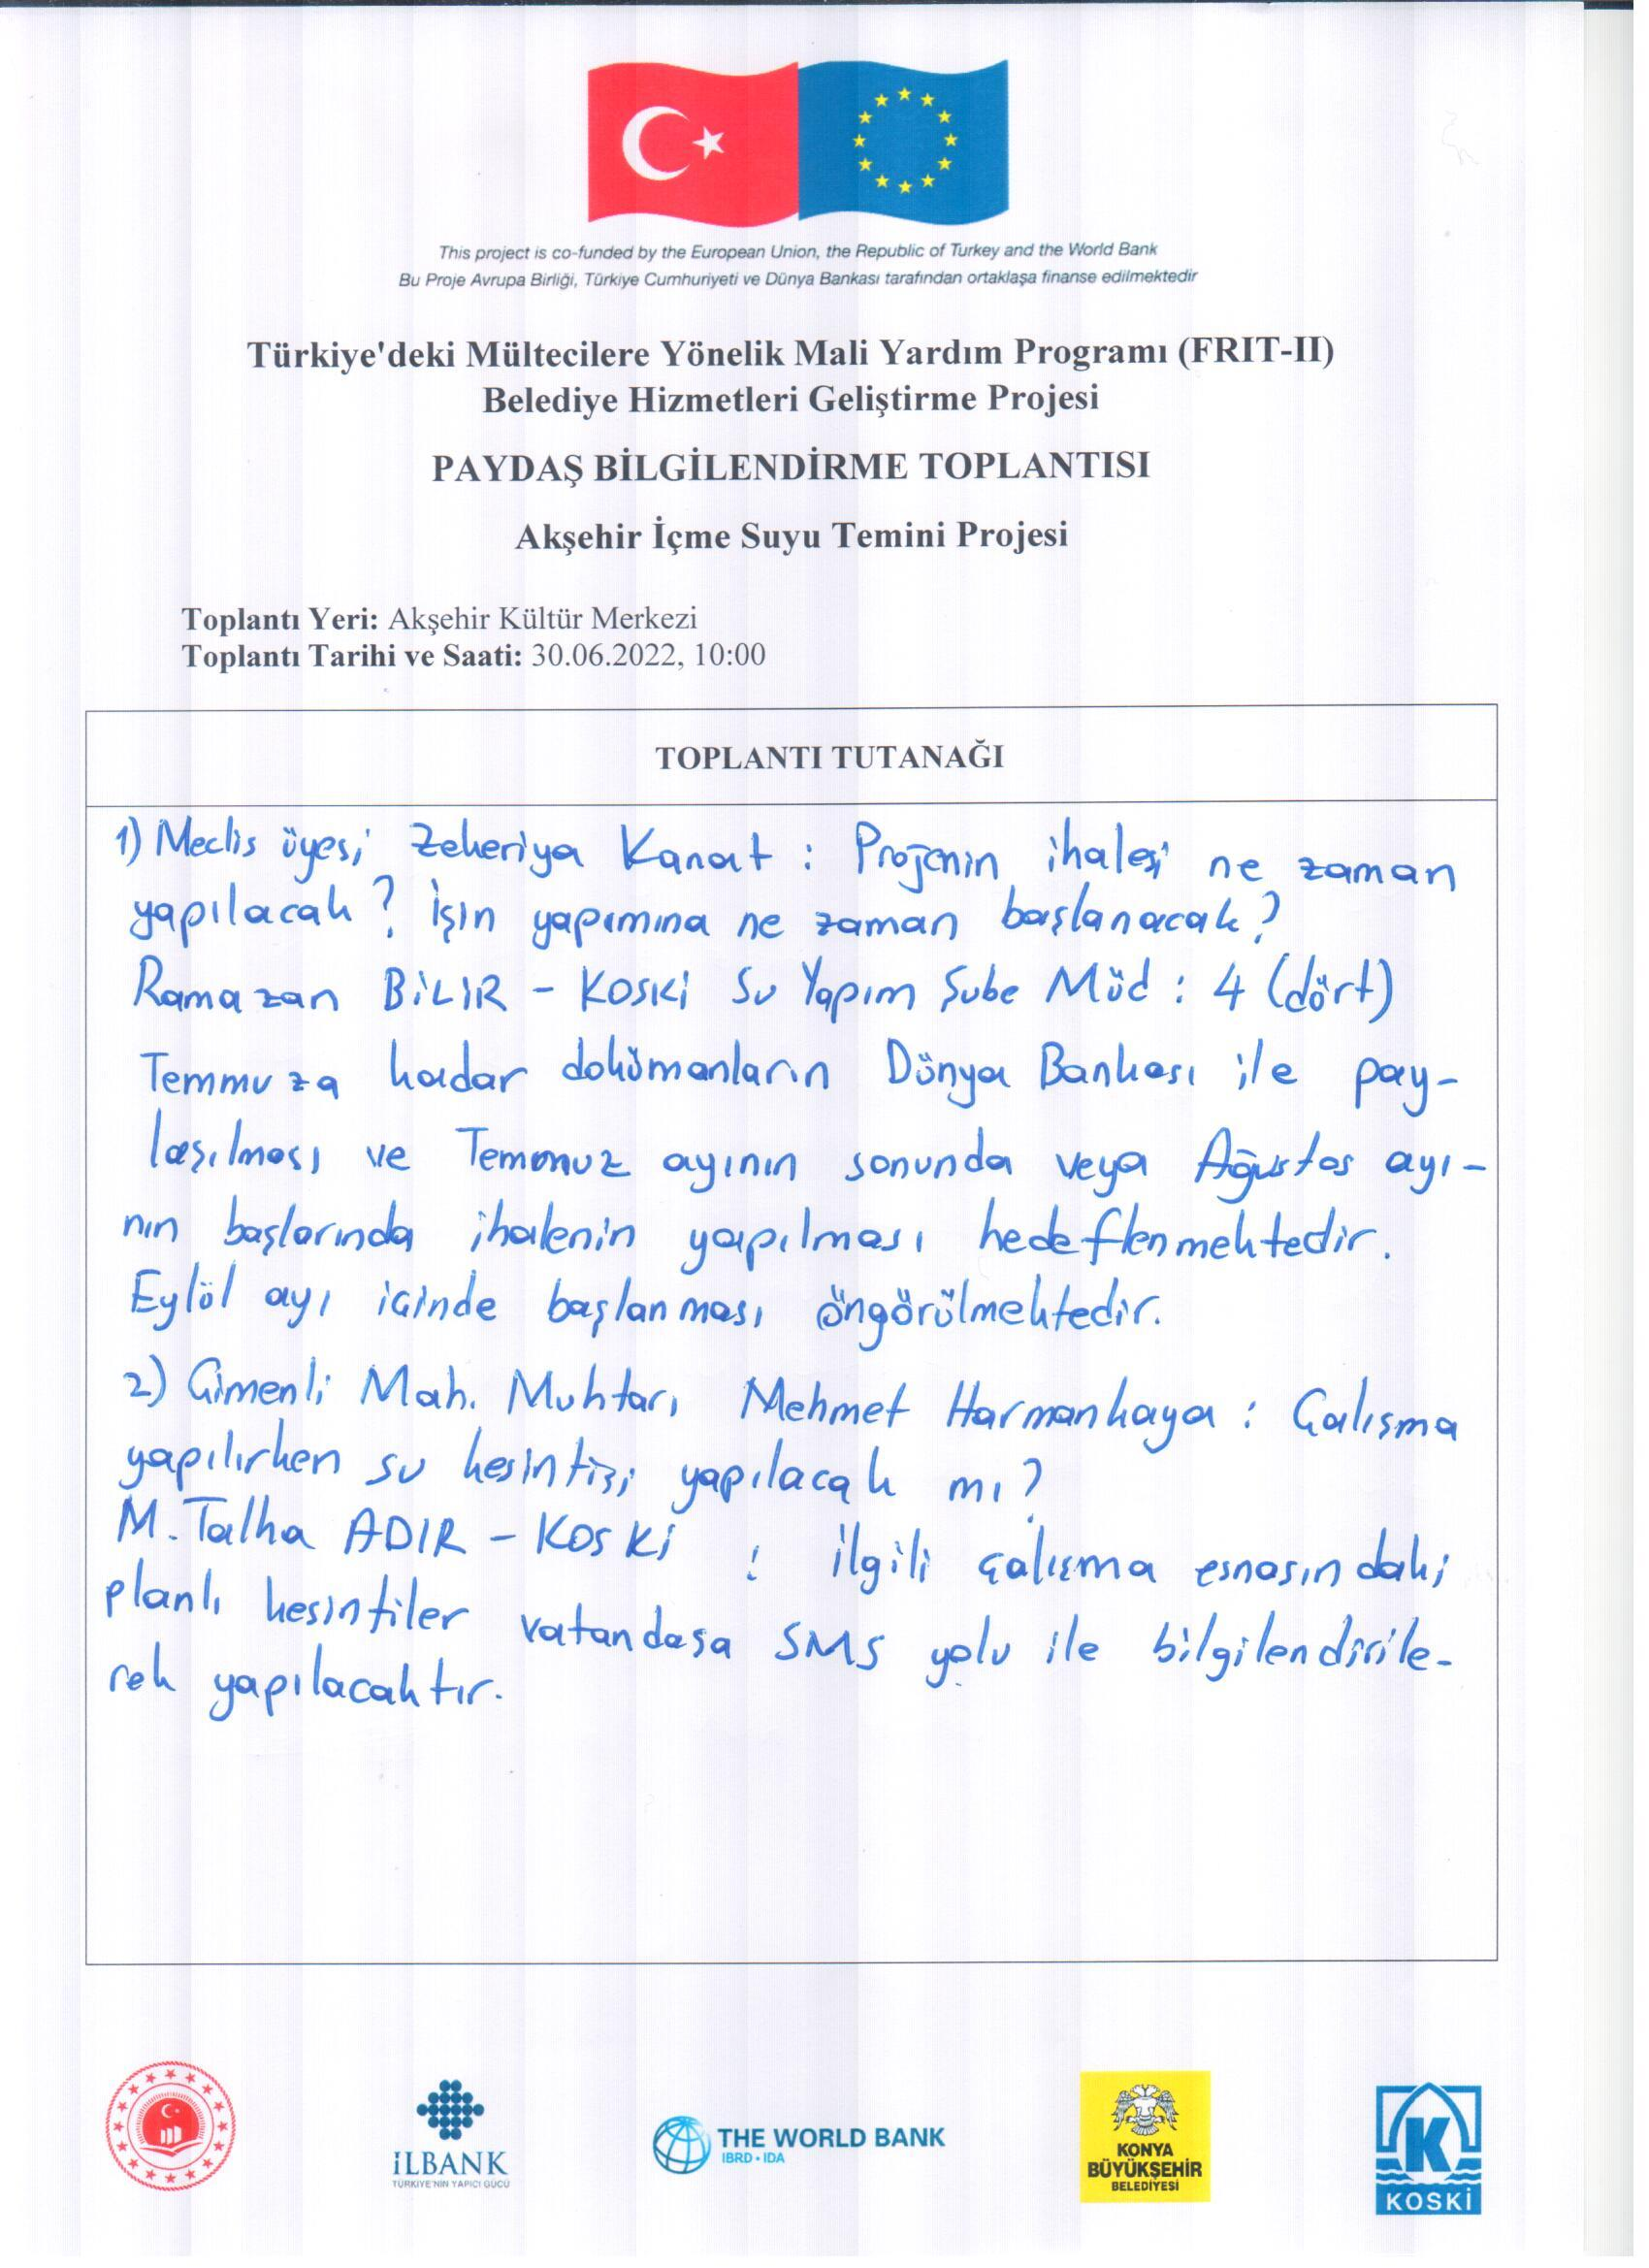 This project is co-funded by the European Union, the Republic of Turkey and the World Bank
Bu Proje Avrupa Birliği, Türkiye Cumhuriyeti ve Dünya Bankası tarafından ortaklaşa finanse edilmektedir
Türkiye'deki Mültecilere Yönelik Mali Yardım Programı (FRIT-II)
Belediye Hizmetleri Geliştirme Projesi
PAYDAŞ BİLGİLENDİRME TOPLANTISI
Akşehir İçme Suyu Temini Projesi
Toplantı Yeri: Akşehir Kültür Merkezi
Toplantı Tarihi ve Saati: 30.06.2022, 10:00
TOPLANTI TUTANAĞI
1) Meclis üyesi Zekeriya Kanat : Projenin ihalesi ne zaman
yapılacak? İşin yapımına ne zaman başlanacak?
Ramazan BİLİR - KOSKİ Su Yapım Şube Müd : 4 (dört)
Temmuza kadar dokümanların Dünya Bankası ile pay-
laşılması ve Temmuz ayının sonunda veya Ağustos ayı-
nın başlarında ihalenin yapılması hedeflenmektedir.
Eylül ayı içinde başlanması öngörülmektedir.
2) Çimenli Mah. Muhtarı Mehmet Harmankaya : Çalışma
yapılırken su kesintisi yapılacak mı?
M. Talha ADIR - KOSKİ : İlgili çalışma esnasındaki
planlı kesintiler vatandaşa SMS yolu ile bilgilendirile-
rek yapılacaktır.
İLBANK
TÜRKİYE'NİN YAPICI GÜCÜ
THE WORLD BANK
IBRD • IDA
KONYA
BÜYÜKŞEHİR
BELEDİYESİ
KOSKİ